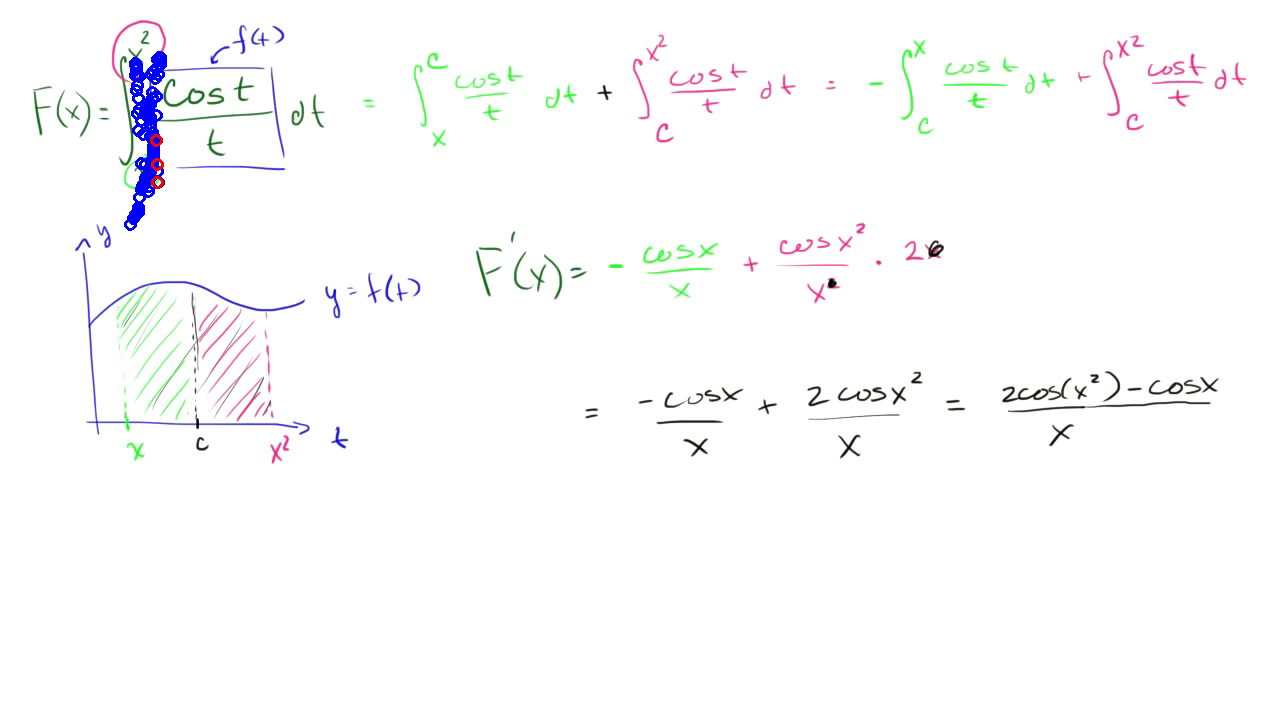 F(x) = ∫ x² cos t / t dt = ∫_x^c cos t / t dt + ∫_c^{x²} cos t / t dt = - ∫_c^x cos t / t dt + ∫_c^{x²} cos t / t dt
f(t)
y
y = f(t)
x c x² t
F'(x) = - cos x / x + cos x² / x · 2
= -cos x / x + 2 cos x² / x = 2cos(x²) - cos x / x